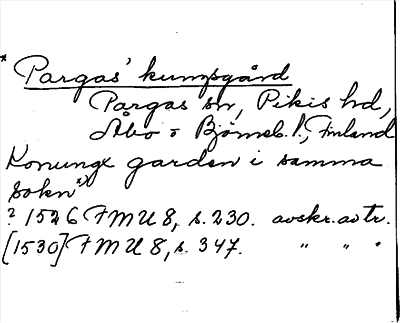 * Pargas' kungsgård
Pargas sn, Pikis hd,
Åbo o Björneb. l., Finland
Konungx garden i samma
sokn *)
? 1526 FMU 8, s. 230. avskr. av tr.
[1530] FMU 8, s. 347. " " "